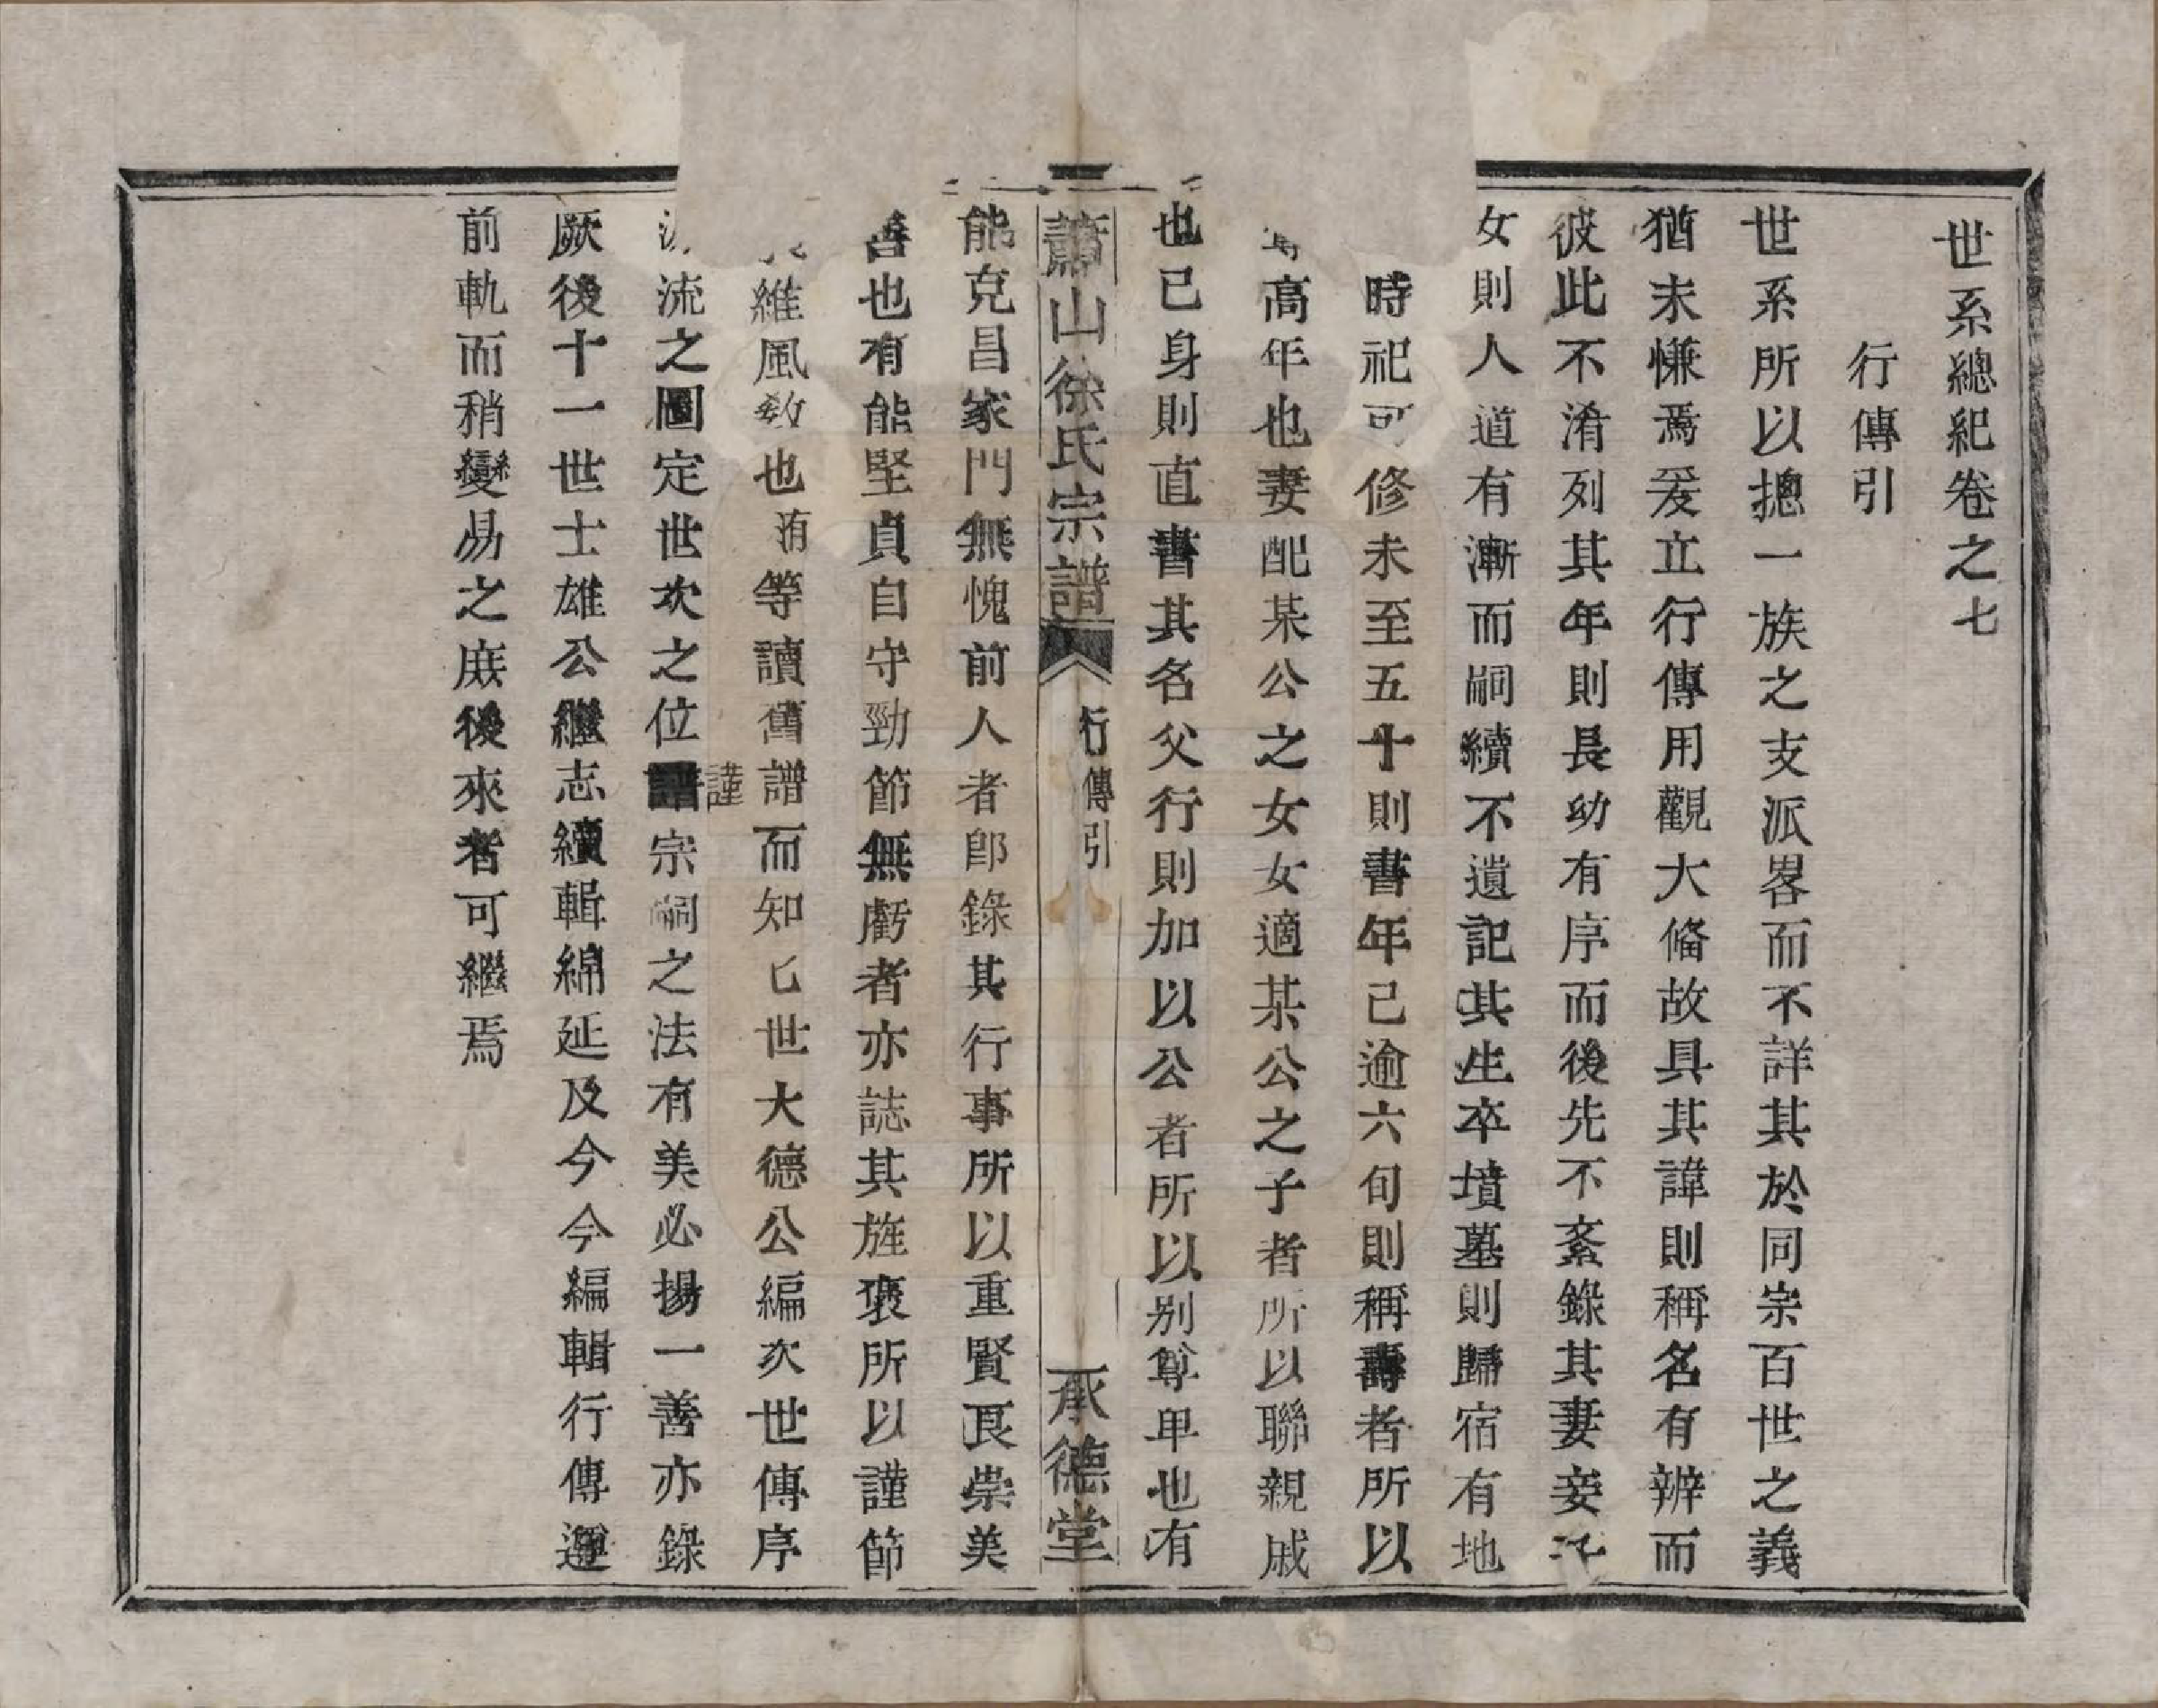 世系總紀卷之七
行傳引
世系所以摠一族之支派畧而不詳其於同宗百世之義
猶未慊焉爰立行傳用觀大俻故具其諱則稱名有辨而
彼此不淆列其年則長幼有序而後先不紊錄其妻妾子
女則人道有漸而嗣續不遺記其生卒墳墓則歸宿有地
時祀可修未至五十則書年已逾六旬則稱壽者所以
高年也妻配某公之女女適某公之子者所以聯親戚
也已身則直書其名父行則加以公者所以别尊卑也有
蕭山徐氏宗譜
行傳引
承德堂
能克昌家門無愧前人者卽錄其行事所以重賢良崇美
善也有能堅貞自守勁節無虧者亦誌其旌褒所以謹節
維風敎也洧等讀舊譜而知七世大德公編次世傳序
謹
流之圖定世次之位譜宗嗣之法有美必揚一善亦錄
厥後十一世士雄公繼志續輯綿延及今今編輯行傳遵
前軌而稍變易之庶後來者可繼焉